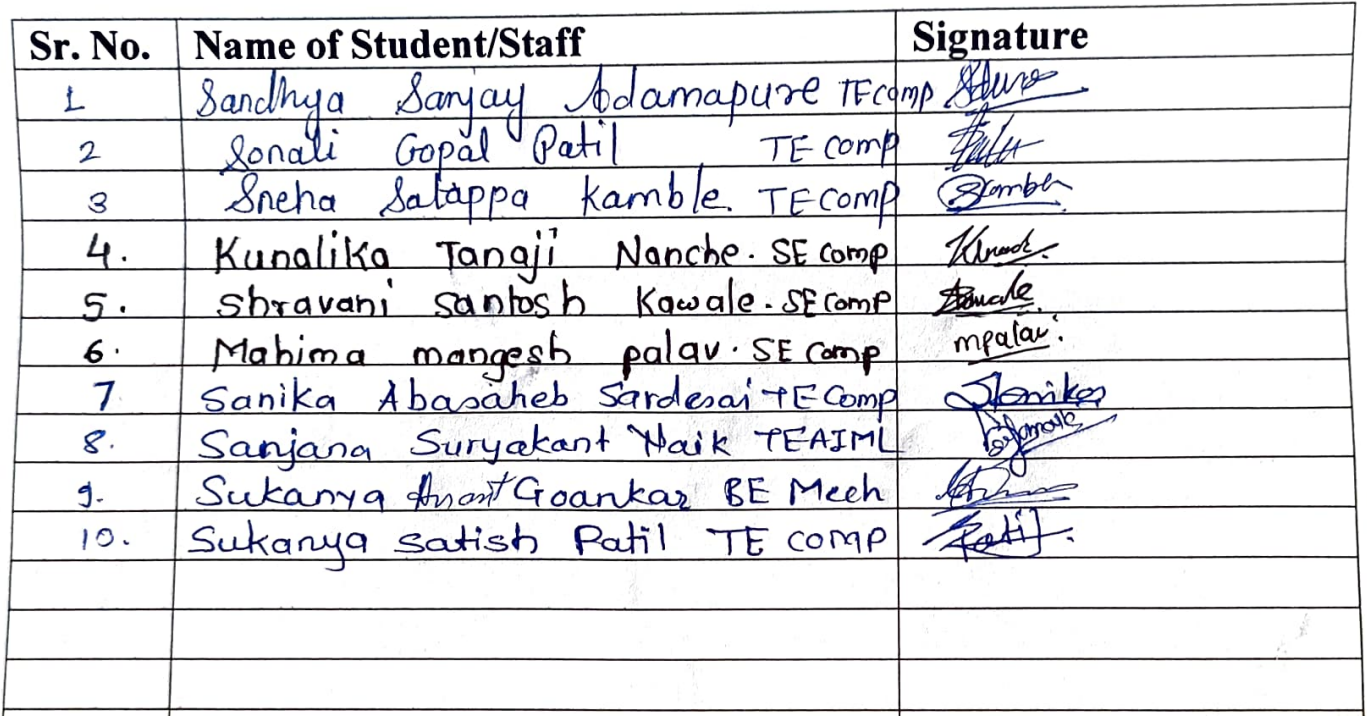 Sr. No. Name of Student/Staff Signature
1 Sandhya Sanjay Adamapure TE comp
2 Sonali Gopal Patil TE comp
3 Sneha Satappa Kamble. TE comp
4. Kunalika Tanaji Nanche. SE comp
5. Shravani santosh Kawale. SE comp
6. Mahima mangesh palav. SE comp mpalav.
7 Sanika Abasaheb Sardesai TE Comp
8. Sanjana Suryakant Naik TEAIML
9. Sukanya Anant Goankar BE Mech
10. Sukanya satish Patil TE comp Patil.